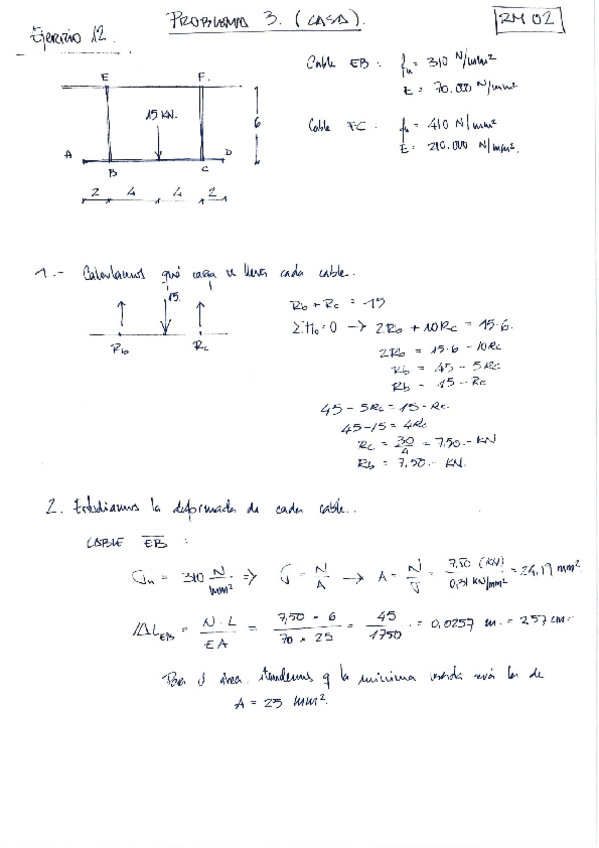 Ejercicio 12.
PROBLEMA 3. (CASA).
RM 02
Cable EB: fu = 310 N/mm²
E = 70.000 N/mm²
Cable FC: fu = 410 N/mm²
E = 210.000 N/mm².
E F.
15 KN.
6
A B C D
2 4 4 2
1.- Calculamos qué carga se lleva cada cable..
15.
Rb Rc
Rb + Rc = 15
2Rb + 10Rc = 15·6.
2Rb = 15·6 - 10Rc
Rb = 45 - 5Rc
Rb = 15 - Rc
45 - 5Rc = 15 - Rc.
45 - 15 = 4Rc
Rc = 30/4 = 7,50.- KN
Rb = 7,50.- KN.
2. Estudiamos la deformada de cada cable..
CABLE EB :
= 310 N/mm² => σ = N/A → A = N/σ = 7,50 (KN) / 0,31 KN/mm² = 24,19 mm²
ΔL EB = N·L / EA = 7,50 × 6 / 70 × 25 = 45 / 1750 = 0,0257 m. = 2,57 cm.
Para el área, q la mínima será la de
A = 25 mm².